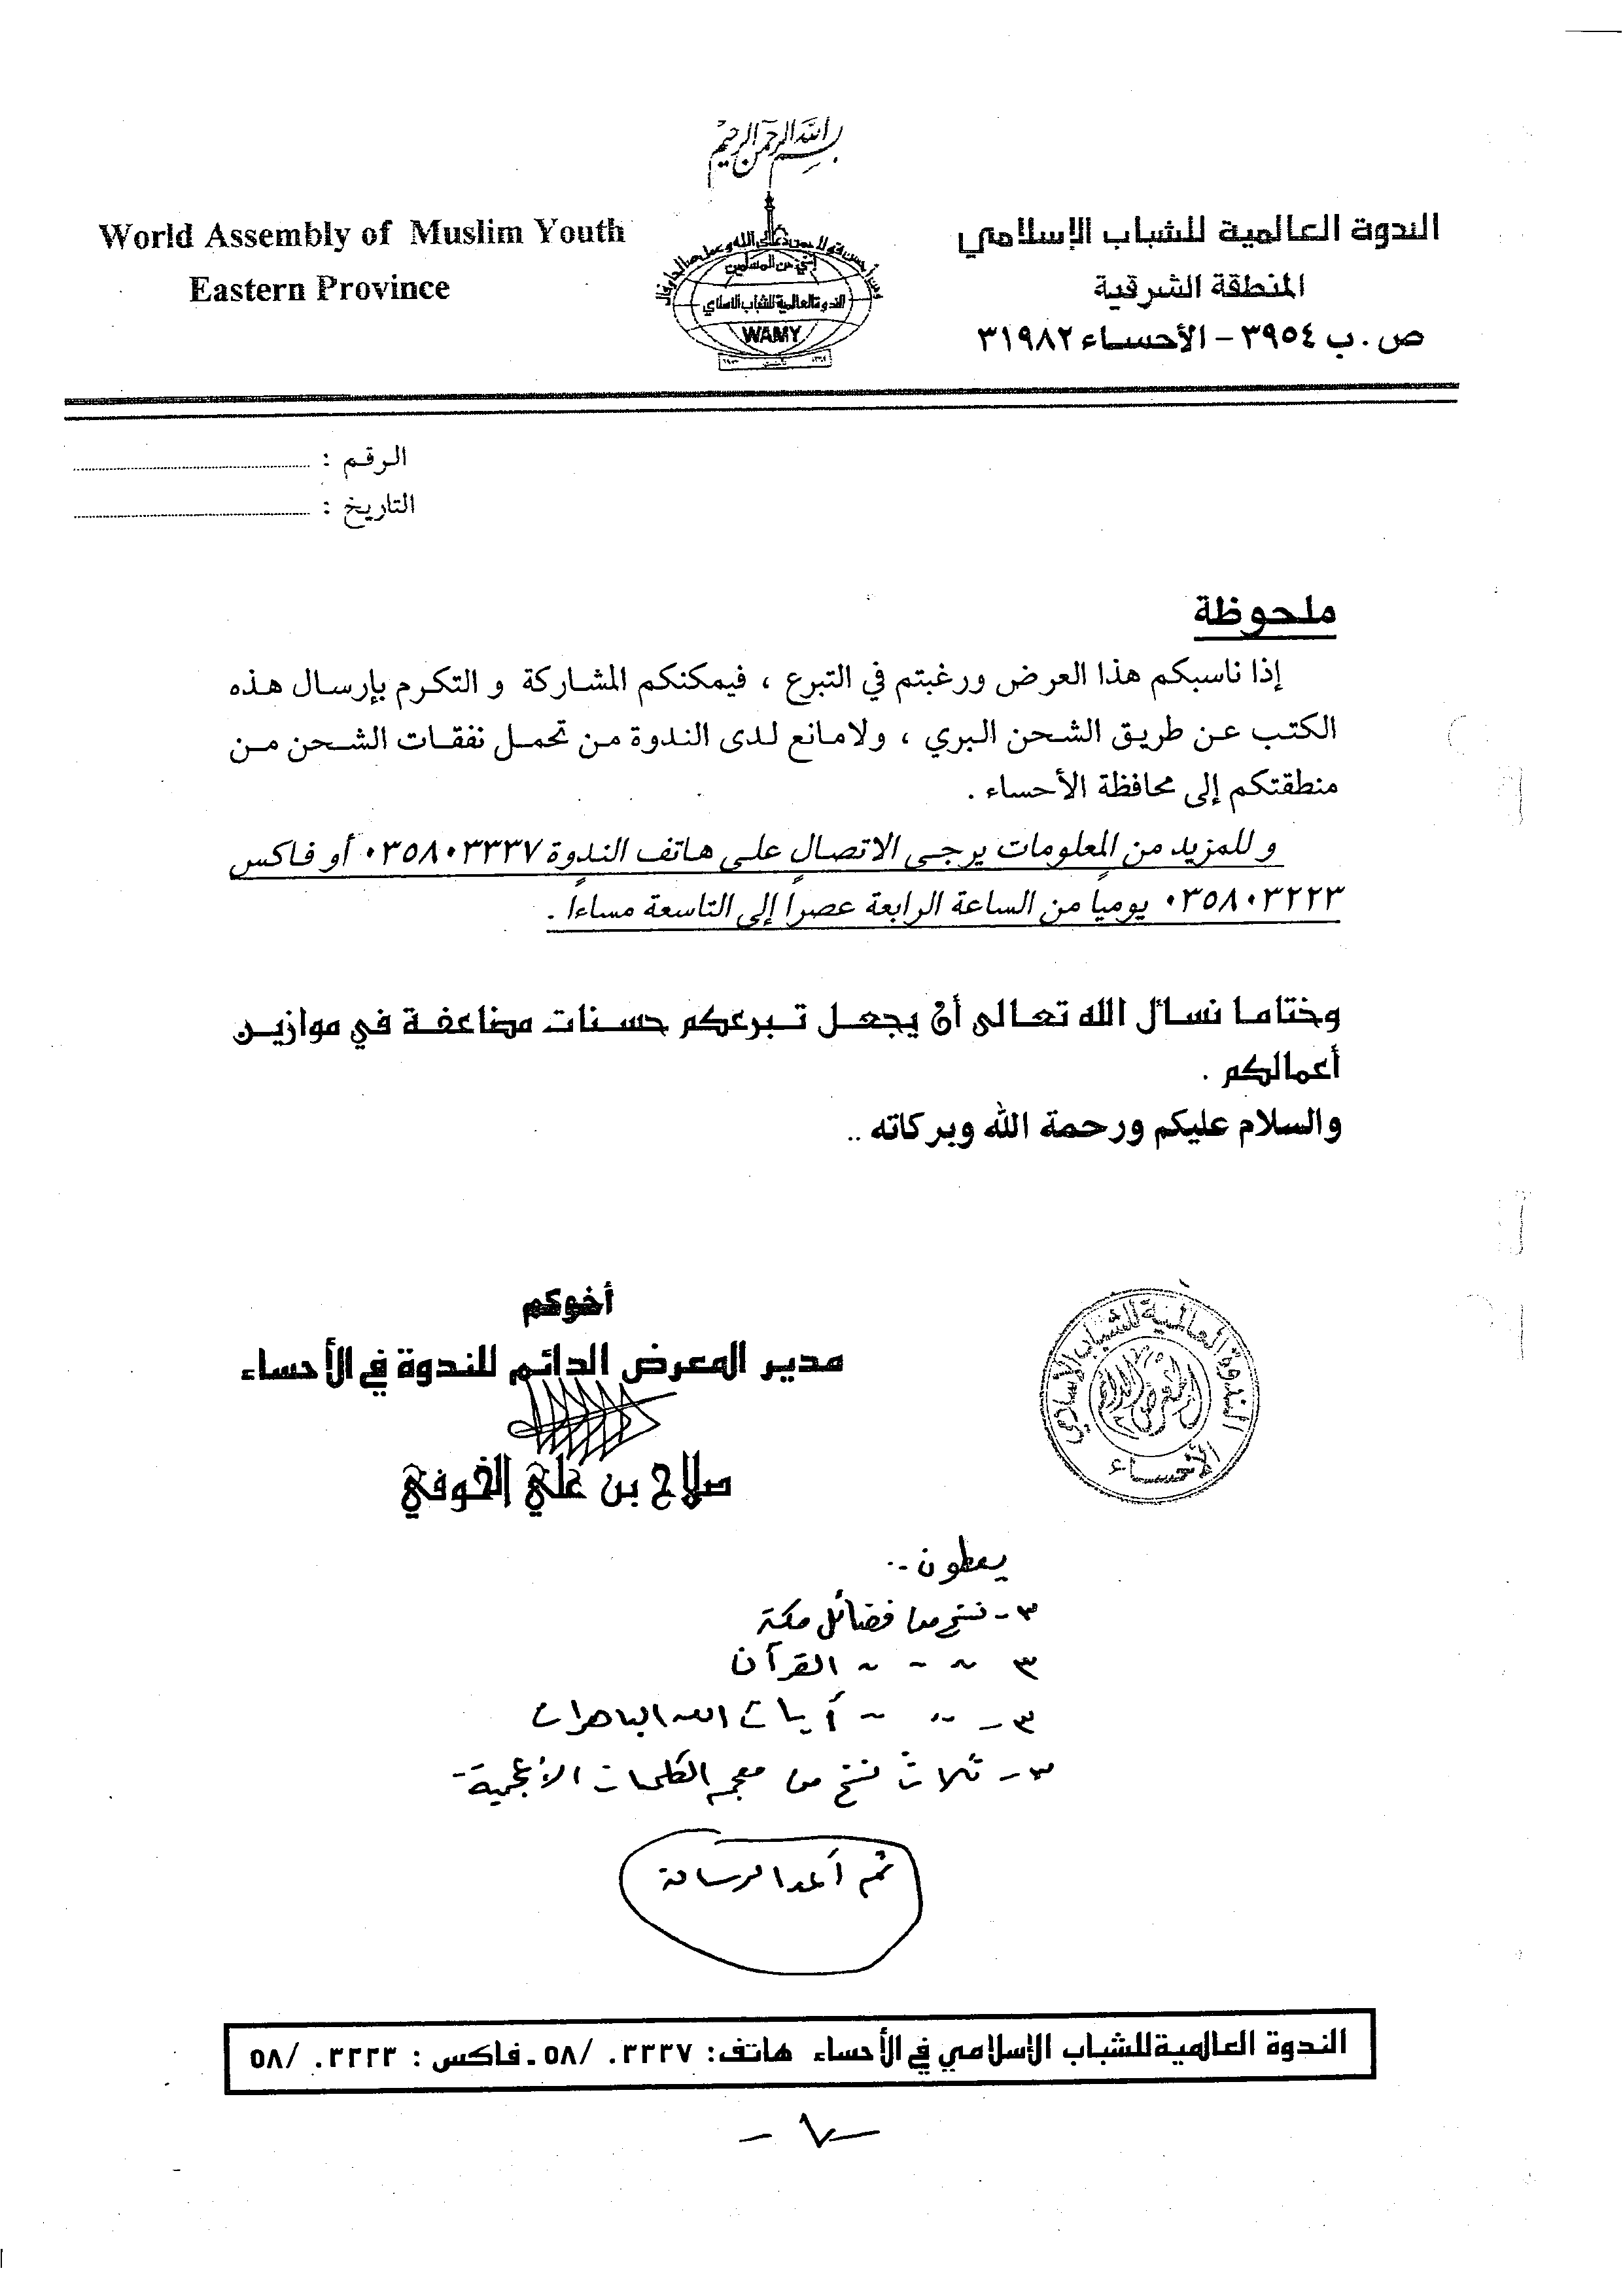 بسم الله الرحمن الرحيم
World Assembly of Muslim Youth
Eastern Province
الندوة العالمية للشباب الإسلامي
المنطقة الشرقية
ص.ب ٣٩٥٤ - الأحساء ٣١٩٨٢
إنني من المسلمين
الندوة العالمية للشباب الاسلامي
WAMY
الرقم :
التاريخ :
ملحوظة
إذا ناسبكم هذا العرض ورغبتم في التبرع ، فيمكنكم المشاركة و التكرم بإرسال هذه
الكتب عن طريق الشحن البري ، ولامانع لدى الندوة من تحمل نفقات الشحن من
منطقتكم إلى محافظة الأحساء .
و للمزيد من المعلومات يرجى الاتصال على هاتف الندوة ٠٣٥٨٠٣٣٣٧ أو فاكس
٠٣٥٨٠٣٢٢٣ يومياً من الساعة الرابعة عصراً إلى التاسعة مساءاً .
وختاما نسأل الله تعالى أن يجعل تبرعكم حسنات مضاعفة في موازين
أعمالكم .
والسلام عليكم ورحمة الله وبركاته ..
أخوكم
مدير المعرض الدائم للندوة في الأحساء
صلاح بن علي الخوفي
الندوة العالمية للشباب الإسلامي
المعرض الدائم
الأحساء
يعطون ..
٣ - نسخ من فضائل مكة
٣ ~ - ~ القرآن
٣ - ,, ~ آيات الله الباهرات
٣ - ثلاث نسخ من معجم الكلمات الأعجمية -
ثم أعد الرسالة
الندوة العالمية للشباب الإسلامي في الأحساء هاتف: ٣٣٣٧. /٥٨ - فاكس : ٣٢٢٣. /٥٨